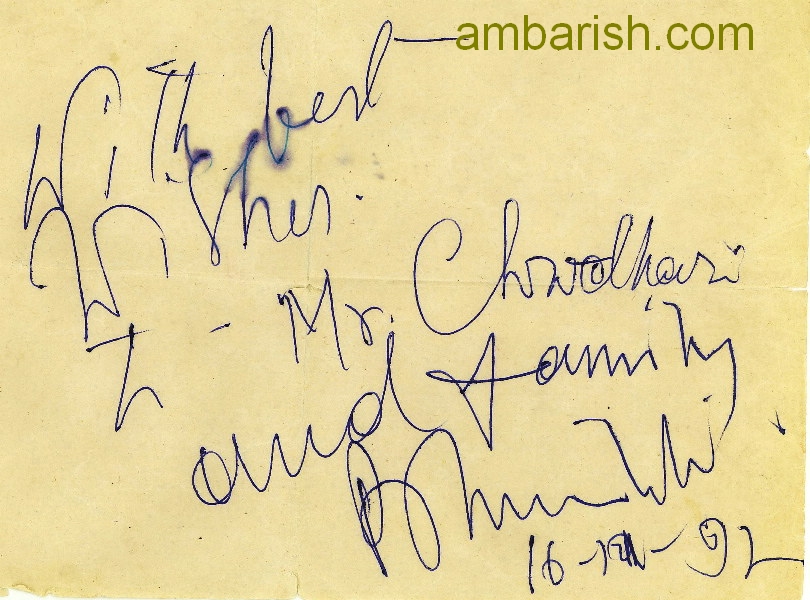 ambarish.com
With best
Wishes.
To - Mr. Chowdhari
and family
16-XII-92